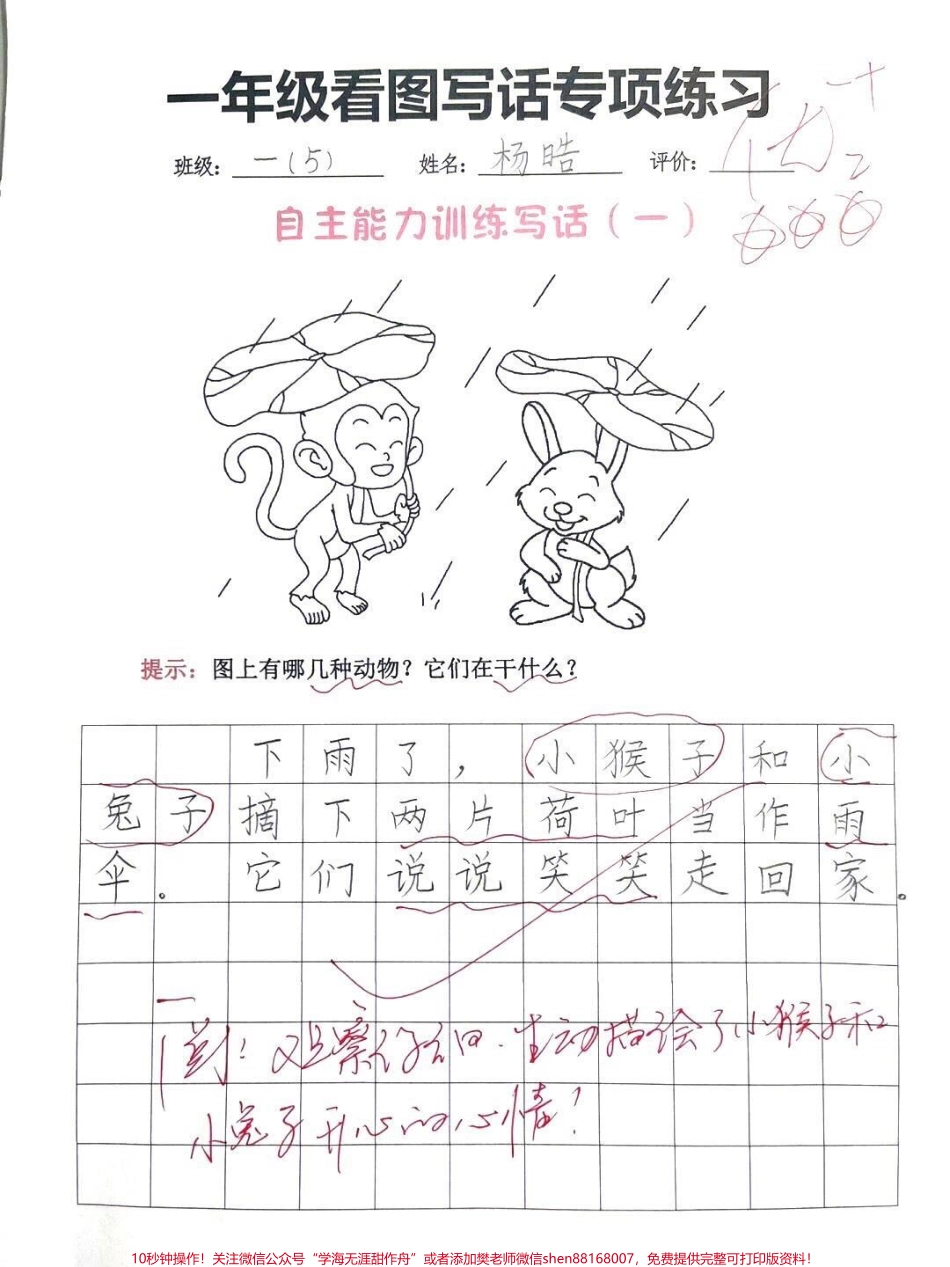 一年级看图写话专项练习
班级：一(5) 姓名：杨晧 评价：优++
自主能力训练写话（一）
提示：图上有哪几种动物？它们在干什么？
下雨了，小猴子和小
兔子摘下两片荷叶当作雨
伞。它们说说笑笑走回家。
观察仔细，生动描绘了小猴子和
小兔子开心的心情！
10秒钟操作！关注微信公众号“学海无涯甜作舟”或者添加樊老师微信shen88168007，免费提供完整可打印版资料！